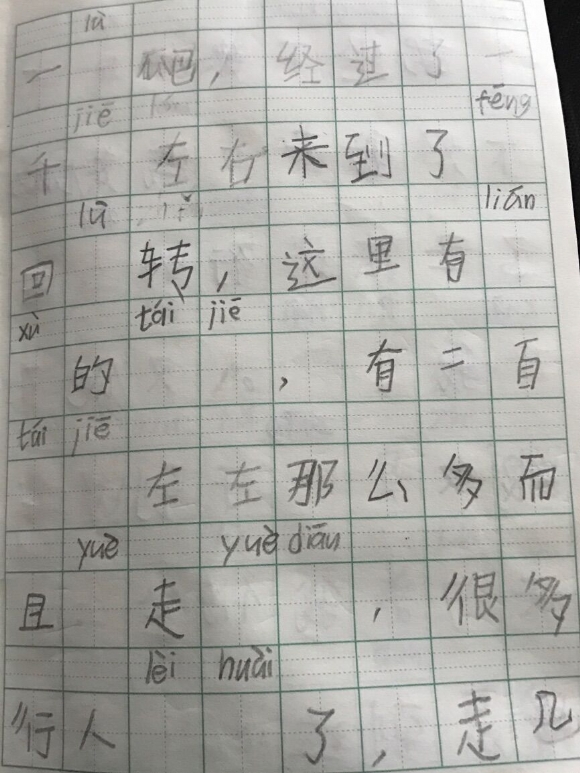 lù
一吧，经过了一
jiē fēng
千左右来到了
lù lián
回转，这里有
xù tái jiē
的，有二百
tái jiē
左左那么多而
yuè yuè diān
且走，很多
lèi huài
行人了，走几